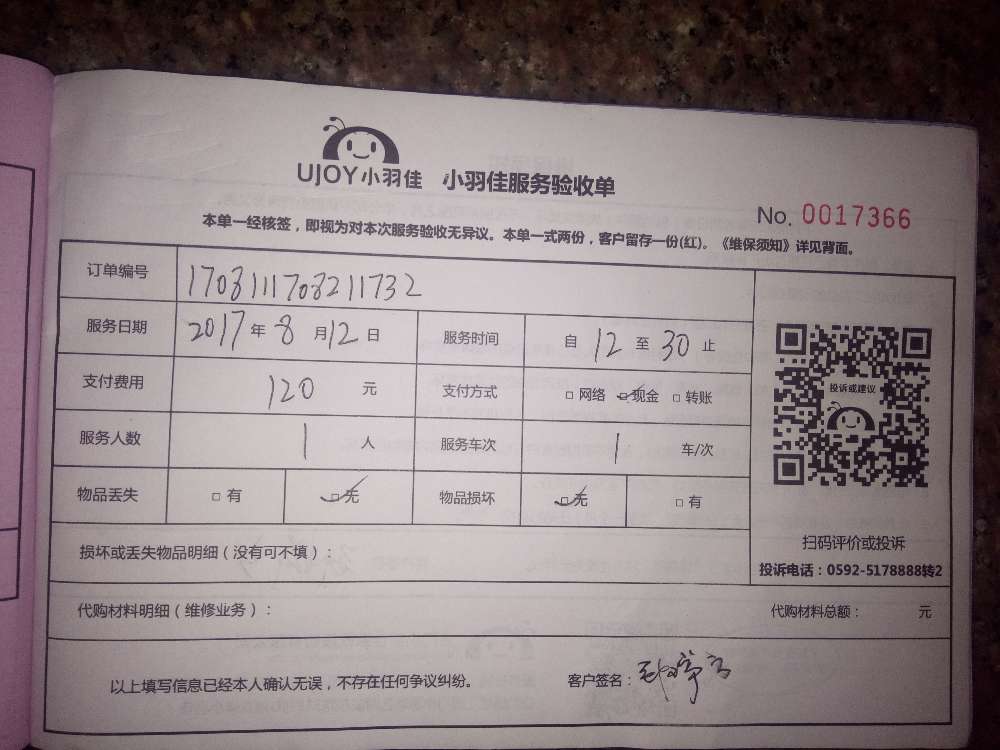 UJOY小羽佳 小羽佳服务验收单
No. 0017366
本单一经核签，即视为对本次服务验收无异议。本单一式两份，客户留存一份(红)。《维保须知》详见背面。
订单编号 1708111708211732
服务日期 2017年 8 月12日 服务时间 自 12 至 30 止
支付费用 120 元 支付方式 □ 网络 □ 现金 □ 转账
投诉或建议
服务人数 1 人 服务车次 1 车/次
物品丢失 □ 有 □ 无 物品损坏 □ 无 □ 有
扫码评价或投诉
损坏或丢失物品明细（没有可不填）：
投诉电话：0592-5178888转2
代购材料明细（维修业务）： 代购材料总额： 元
以上填写信息已经本人确认无误，不存在任何争议纠纷。 客户签名：